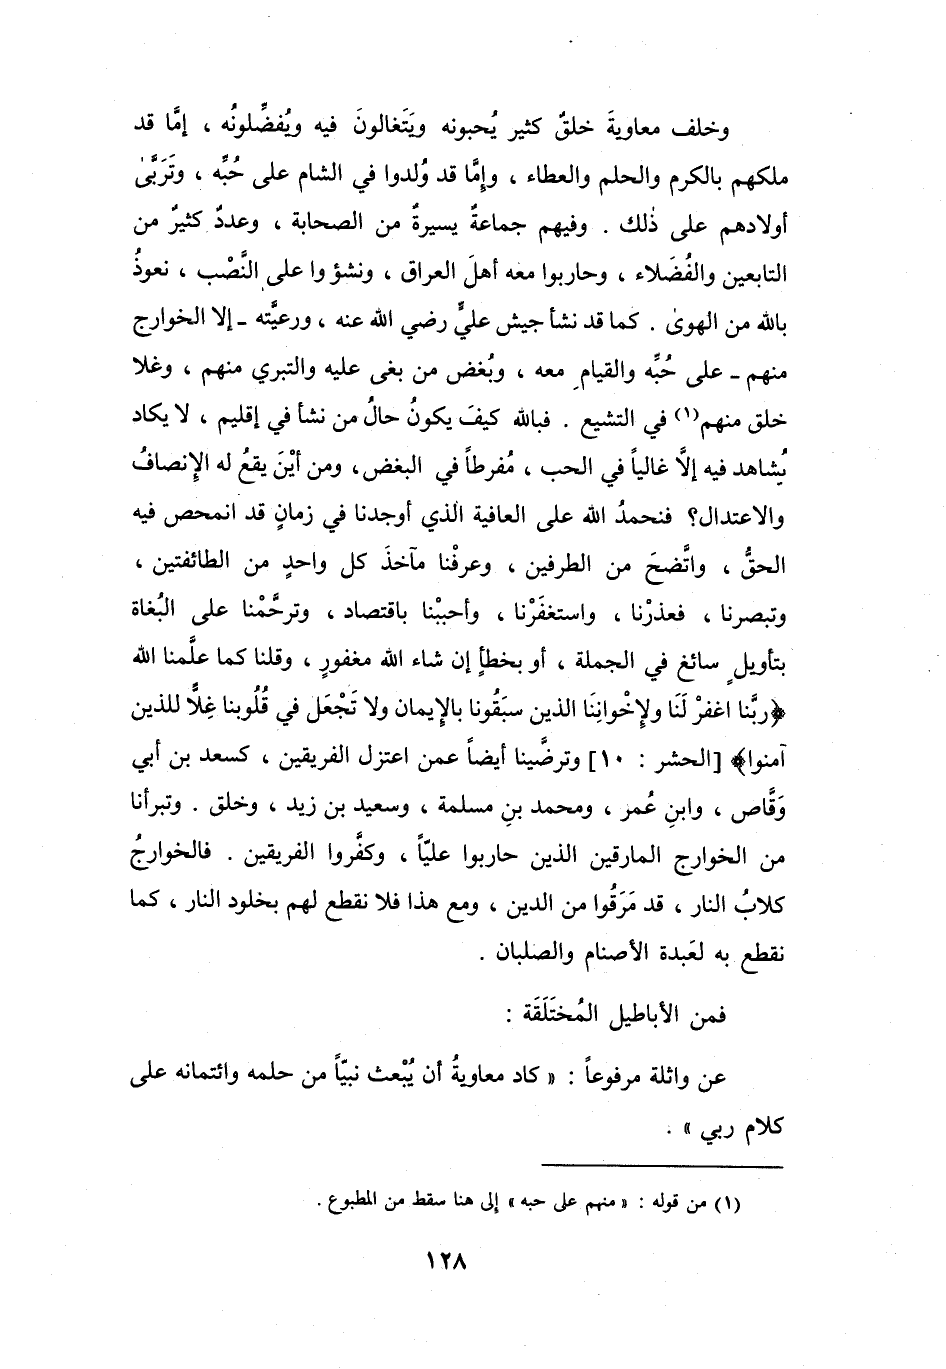 وخلف معاويةَ خلقٌ كثير يُحبونه ويَتَغالونَ فيه ويُفضِّلونُه ، إمَّا قد
ملكهم بالكرم والحلم والعطاء ، وإمَّا قد وُلدوا في الشام على حُبِّه ، وتَرَبَّىٰ
أولادهم على ذٰلك . وفيهم جماعةٌ يسيرةٌ من الصحابة ، وعددٌ كثيرٌ من
التابعين والفُضَلاء ، وحاربوا معه أهلَ العراق ، ونشؤوا على النَّصْب ، نعوذُ
بالله من الهوىٰ . كما قد نشأ جيش عليٍّ رضي الله عنه ، ورعيَّته ـ إلا الخوارج
منهم ـ على حُبِّه والقيام معه ، وبُغض من بغى عليه والتبري منهم ، وغلا
خلق منهم(١) في التشيع . فبالله كيفَ يكونُ حالُ من نشأ في إقليم ، لا يكاد
يُشاهد فيه إلَّا غالياً في الحب ، مُفرطاً في البغض، ومن أيْنَ يقعُ له الإنصافُ
والاعتدال؟ فنحمدُ الله على العافية الذي أوجدنا في زمانٍ قد انمحص فيه
الحقُّ ، واتَّضحَ من الطرفين ، وعرفْنا مآخذَ كل واحدٍ من الطائفتين ،
وتبصرنا ، فعذرْنا ، واستغفَرْنا ، وأحببْنا باقتصاد ، وترحَّمْنا على البُغاة
بتأويلٍ سائغ في الجملة ، أو بخطأٍ إن شاء الله مغفورٍ ، وقلنا كما علَّمنا الله
﴿ربَّنا اغفرْ لَنَا ولإِخْوانِنَا الذين سبَقُونا بالإيمان ولا تَجْعَل في قُلُوبنا غِلًّا للذين
آمنوا﴾ [الحشر : ١٠] وترضَّينا أيضاً عمن اعتزل الفريقين ، كسعد بن أبي
وَقَّاص ، وابنِ عُمر ، ومحمد بنِ مسلمة ، وسعيد بن زيد ، وخلق . وتبرأنا
من الخوارج المارقين الذين حاربوا عليّاً ، وكفَّروا الفريقين . فالخوارجُ
كلابُ النار ، قد مَرَقُوا من الدين ، ومع هذا فلا نقطع لهم بخلود النار ، كما
نقطع به لعَبدة الأصنام والصلبان .
فمن الأباطيل المُختَلَقَة :
عن واثلة مرفوعاً : « كاد معاويةُ أن يُبْعث نبيّاً من حلمه وائتمانه على
كلام ربي » .
(١) من قوله : « منهم على حبه » إلى هنا سقط من المطبوع .
١٢٨